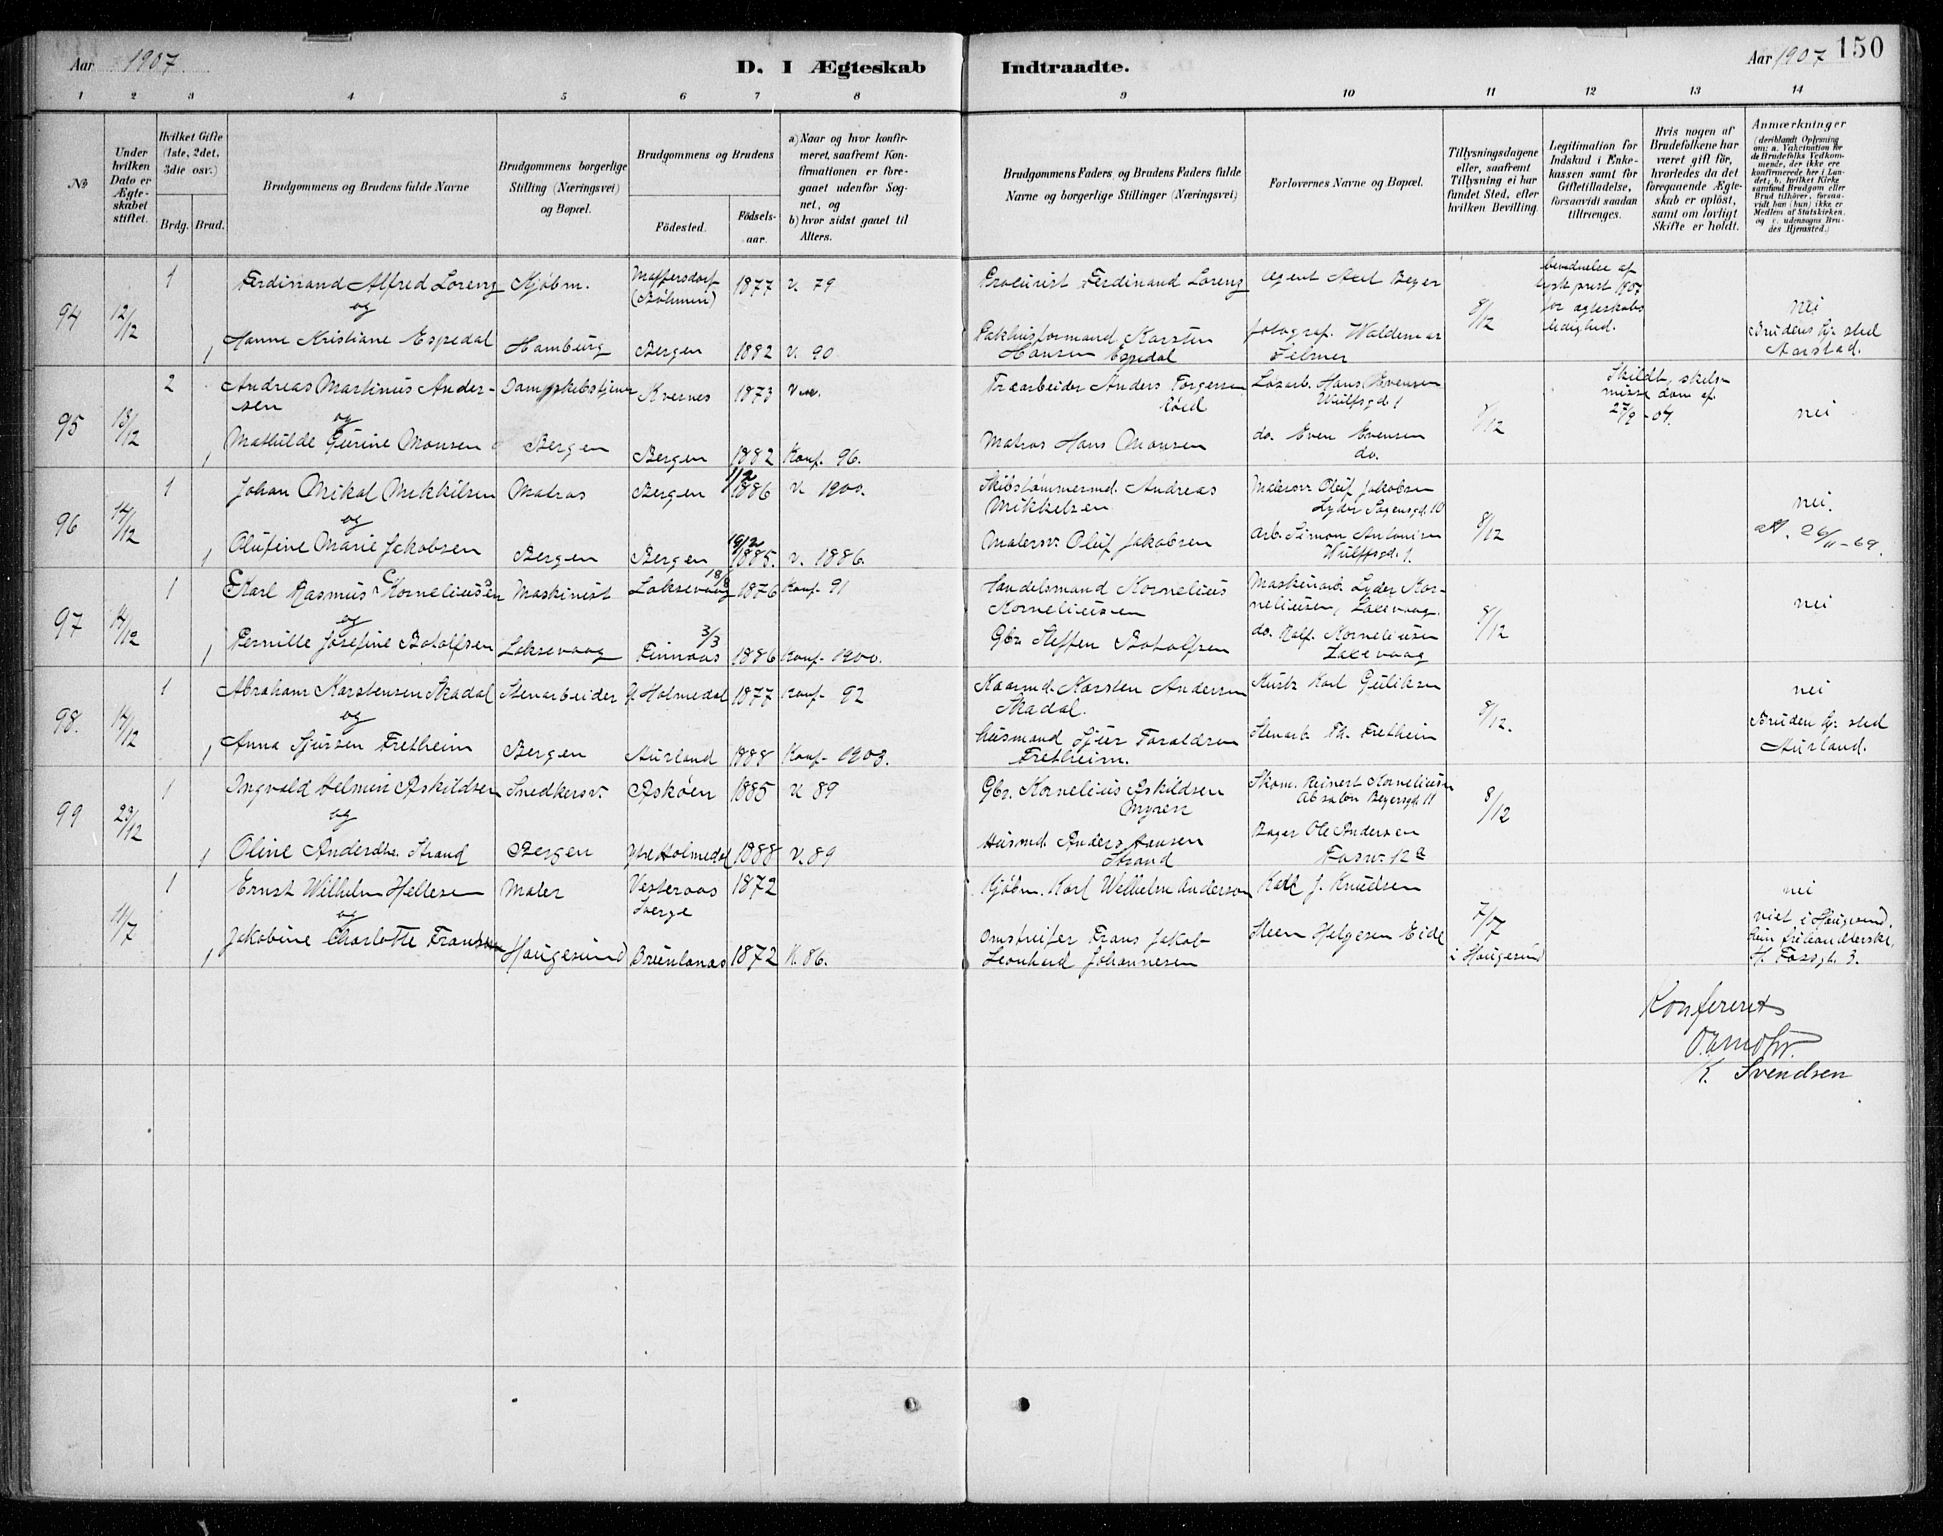 Aar 1907
D. I Ægteskab Indtraadte.
Aar 1907 150
1 2 3 4 5 6 7 8 9 10 11 12 13 14
No
Under hvilken Dato er Ægteskabet stiftet.
Hvilket Gifte (1ste, 2det, 3die osv.)
Brdg. Brud.
Brudgommens og Brudens fulde Navne
Brudgommens borgerlige Stilling (Næringsvei) og Bopæl.
Brudgommens og Brudens
Födested.
Födselsaar.
a) Naar og hvor konfirmeret, saafremt Konfirmationen er foregaaet udenfor Sognet, og
b) hvor sidst gaaet til Alters.
Brudgommens Faders, og Brudens Faders fulde Navne og borgerlige Stillinger (Næringsvei)
Forlovernes Navne og Bopæl.
Tillysningsdagene eller, saafremt Tillysning ei har fundet Sted, efter hvilken Bevilling.
Legitimation for Indskud i Enkekassen samt for Giftetilladelse, forsaavidt saadan tiltrænges.
Hvis nogen af Brudefolkene har været gift för, hvorledes da det foregaaende Ægteskab er oplöst, samt om lovligt Skifte er holdt.
Anmærkninger (deriblandt Oplysning om: a. Vakcination for de Brudefolks Vedkommende, der ikke ere konfirmerede her i Landet; b. hvilket Kirkesamfund Brudgom eller Brud tilhörer, forsaavidt han (hun) ikke er Medlem af Statskirken og c. udensogns Brudes Hjemsted.)
94 12/12 1 Ferdinand Alfred Lorenz Kjöbm. Maffersdorf (Böhmen) 1877 v. 79 Procurist Ferdinand Lorenz Agent Axel Beyer 8/12 tysk prest 1907 for ægteskabs ledighed. nei
og
1 Hanne Kristiane Espedal Hamburg Bergen 1882 v. 90 Pakhusformand Karsten Hansen Espedal fotograf. Waldemar Brudens hj. sted Aarstad.
95 13/12 2 Andreas Martinus Andersen Kvernes 1873 Træarbeider Anders Hans Evensen Wulfsgd. 1 8/12 Skildt, skilsmisse dom af 27/9-04. nei
og
1 Mathilde Gurine Monsen Bergen Bergen 1882 Konf. 96. Matros Hans Monsen do. Even Evensen do.
96 14/12 1 Johan Mikal Mikkelsen Matros Bergen 1/2 1886 v. 1900. Skibstømmermd. Andreas Mikkelsen Malersv. Oluf Jakobsen Lyder Sagensgd. 10 8/12 nei.
og
1 Olufine Marie Jakobsen Bergen Bergen 19/12 1885. v. 1886. Malersv. Oluf Jakobsen Arb. Simon Antonisen Wulffsgd. 1. att. 26/11-69.
97 14/12 1 Karl Rasmus Korneliussen Maskinist Laksevaag 18/8 1876 Konf 91 Handelsmand Kornelius Korneliussen Maskinarb. Lyder Korneliussen, Laxevaag. 8/12 nei
og
1 Pernille Josefine Botolfsen Laksevaag Finnaas 3/3 1886 Konf- 1900. Gbr. Steffen Botolfsen do. Ralf. Korneliussen Laxevaag
98. 14/12 1 Abraham Karstensen Skadal Stenarbeider Y. Holmedal 1877 Konf- 92 Kaarmd. Karsten Andersen Skadal. Karl Guliksen 8/12. nei
og
1 Anna Sjursen Fretheim Bergen Aurland 1888 Konf- 1903. Husmand Sjur Toraldsen Fretheim. Stenarb. Th. Fretheim Bruden hj. sted Aurland.
99 23/12 1 Ingvald Helmin Askildsen Snedkersv. Askøen 1885 v. 89 Gbr. Kornelius Askildsen Myren Skom. Reinert Korneliussen Absalon Beyersgd. 11 8/12
og
1 Oline Andersdtr. Strand Bergen Ytre Holmedal 1888 v. 89 Husmd. Anders Hansen Strand Bager Ole Andersen
11/7 1 Ernst Wilhelm Hellesen Maler Vesteraas Sverge 1872 Kjöbm. Karl Wilhelm Anderson Karl J. Knudsen 7/7 i Haugesund nei
og
1 Jakobine Charlotte Fransen Haugesund Brunlanæs 1872 K. 86. Omstreifer Frans Jakob Leonhard Johannesen Steen Helgesen Eide viet i Haugesund.
Konfereret
K. Svendsen